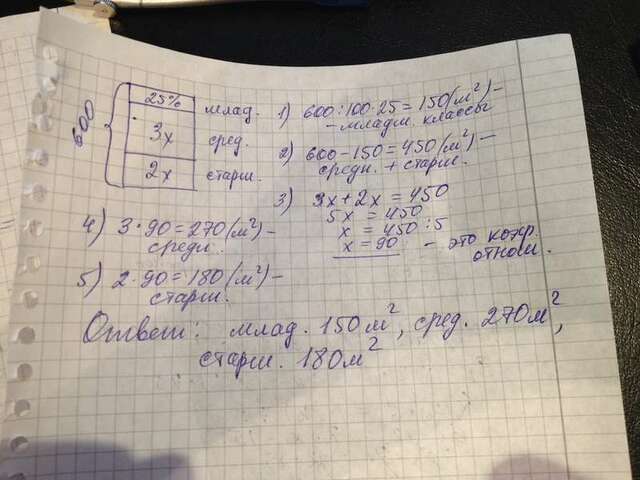 600
25% млад. 1) 600:100·25=150(м²)–
– младш. классы
3x сред. 2) 600–150=450(м²)–
средн. + старш.
2x старш. 3) 3x+2x=450
5x=450
x=450:5
x=90 – это коэф. относш.
4) 3·90=270(м²)–
средн.
5) 2·90=180(м²)–
старш.
Ответ: млад. 150м², сред. 270м²,
старш. 180м²